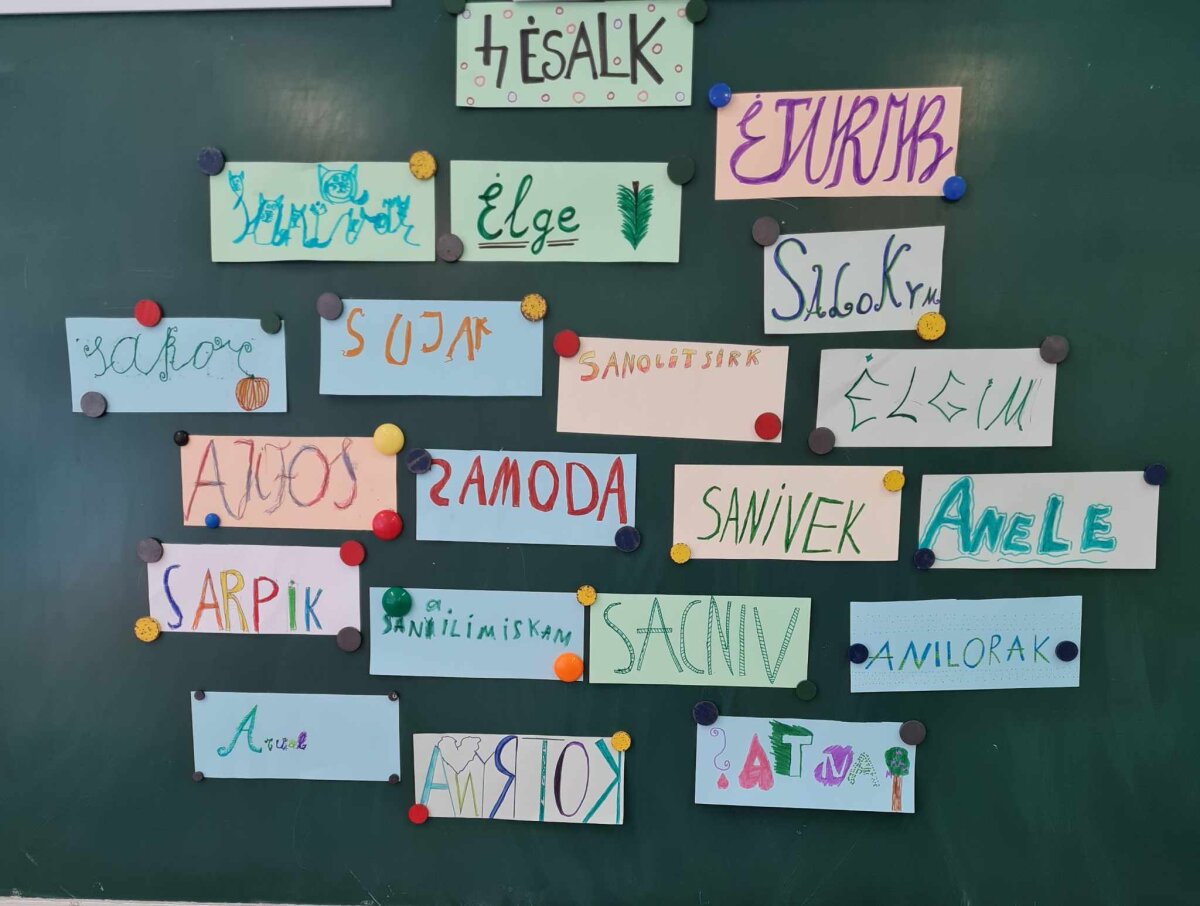 4 ĖSALK
Ėlge
SALOKYM
sakor
SUJAK
SANOLITSIRK
ĖLGIM
AJIFOS
SAMODA
SANIVEK
ANELE
SARPIK
SANAILIMISKAM
SACNIV
ANILORAK
Arual